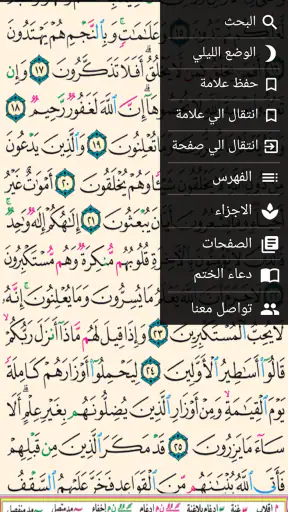 البحث
الوضع الليلي
حفظ علامة
انتقال الي علامة
انتقال الي صفحة
الفهرس
الاجزاء
الصفحات
دعاء الختم
تواصل معنا
١٥ وَعَلَـٰمَـٰتٍ وَبِٱلنَّجْمِ هُمْ يَهْتَدُونَ
يَخْلُقُ أَفَلَا تَذَكَّرُونَ ١٧ وَإِن
إِنَّ ٱللَّهَ لَغَفُورٌ رَّحِيمٌ ١٨
تُعْلِنُونَ ١٩ وَٱلَّذِينَ يَدْعُونَ
يُخْلَقُونَ ٢٠ أَمْوَٰتٌ غَيْرُ
يُبْعَثُونَ ٢١ إِلَـٰهُكُمْ إِلَـٰهٌ وَٰحِدٌ
قُلُوبُهُم مُّنكِرَةٌ وَهُم مُّسْتَكْبِرُونَ
يَعْلَمُ مَا يُسِرُّونَ وَمَا يُعْلِنُونَ إِنَّهُۥ
لَا يُحِبُّ ٱلْمُسْتَكْبِرِينَ ٢٣ وَإِذَا قِيلَ لَهُم مَّاذَآ أَنزَلَ رَبُّكُمْ
قَالُوٓا۟ أَسَـٰطِيرُ ٱلْأَوَّلِينَ ٢٤ لِيَحْمِلُوٓا۟ أَوْزَارَهُمْ كَامِلَةً
يَوْمَ ٱلْقِيَـٰمَةِ وَمِنْ أَوْزَارِ ٱلَّذِينَ يُضِلُّونَهُم بِغَيْرِ عِلْمٍ أَلَا
سَآءَ مَا يَزِرُونَ ٢٥ قَدْ مَكَرَ ٱلَّذِينَ مِن قَبْلِهِمْ
فَأَتَى ٱللَّهُ بُنْيَـٰنَهُم مِّنَ ٱلْقَوَاعِدِ فَخَرَّ عَلَيْهِمُ ٱلسَّقْفُ